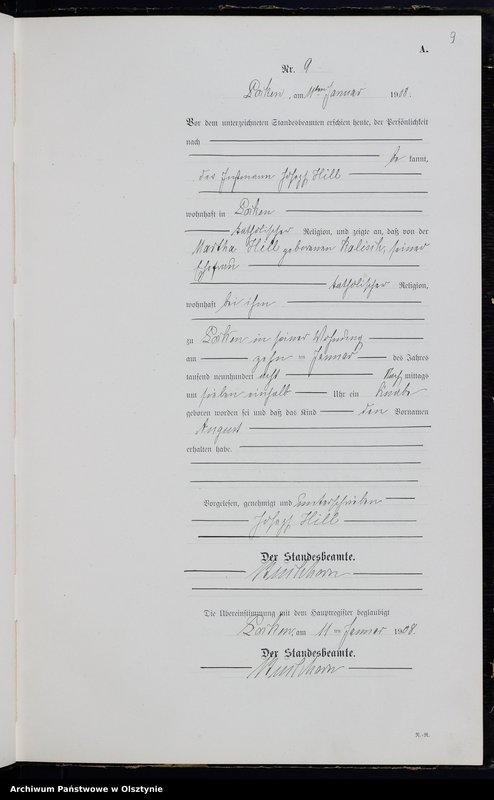 9
A.
Nr. 9
am 11ten Januar 1908.
Vor dem unterzeichneten Standesbeamten erschien heute, der Persönlichkeit
nach
be kannt,
der Instmann Joseph Hill
wohnhaft in
katholischer Religion, und zeigte an, daß von der
Martha Hill geborenen Kalisch, seiner
Ehefrau
katholischer Religion,
wohnhaft bei ihm
zu in seiner Wohnung
am zehn ten Januar des Jahres
tausend neunhundert acht Nach mittags
um sieben einhalb Uhr ein Knabe
geboren worden sei und daß das Kind den Vornamen
August
erhalten habe.
Vorgelesen, genehmigt und unterschrieben
Joseph Hill
Der Standesbeamte.
Die Übereinstimmung mit dem Hauptregister beglaubigt
am 11ten Januar 1908.
Der Standesbeamte.
R.-R.
Archiwum Państwowe w Olsztynie